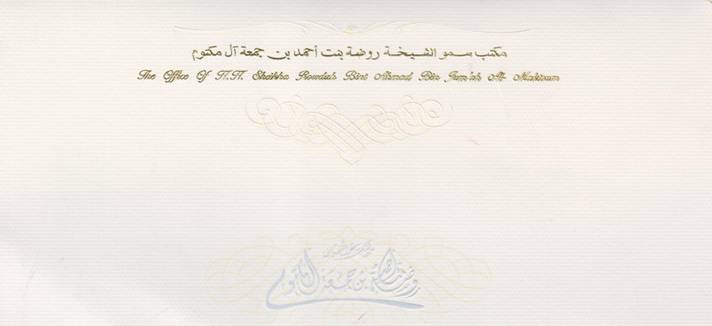 مكتب سمو الشيخة روضة بنت أحمد بن جمعة آل مكتوم
The Office Of H.H. Sheikha Rowdah Bint Ahmad Bin Jum'ah Al-Maktoum